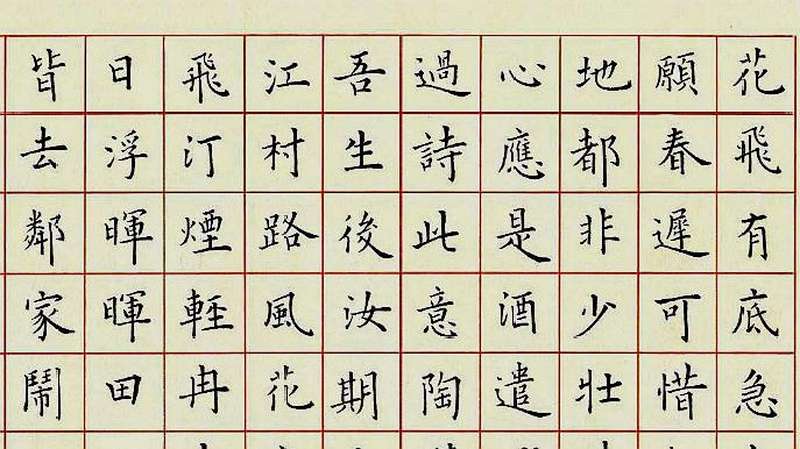 花飛有底急
願春遲可惜
地都非少壯
心應是酒遣
過詩此意陶
吾生後汝期
江村路風花
飛汀煙輕冉
日浮暉暉田
皆去鄰家鬧